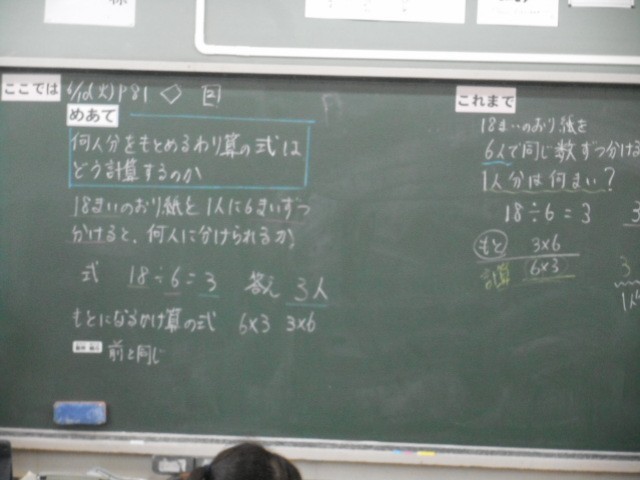 ここでは
P81 ◇ 2
めあて
何人分をもとめるわり算の式は
どう計算するのか
18まいのおり紙を1人に6まいずつ
分けると、何人に分けられるか
式 18÷6=3 答え 3人
もとになるかけ算の式 6×3 3×6
前と同じ
これまで
18まいのおり紙を
6人で同じ数ずつ分ける
1人分は何まい?
18÷6=3
もと 3×6
計算 6×3